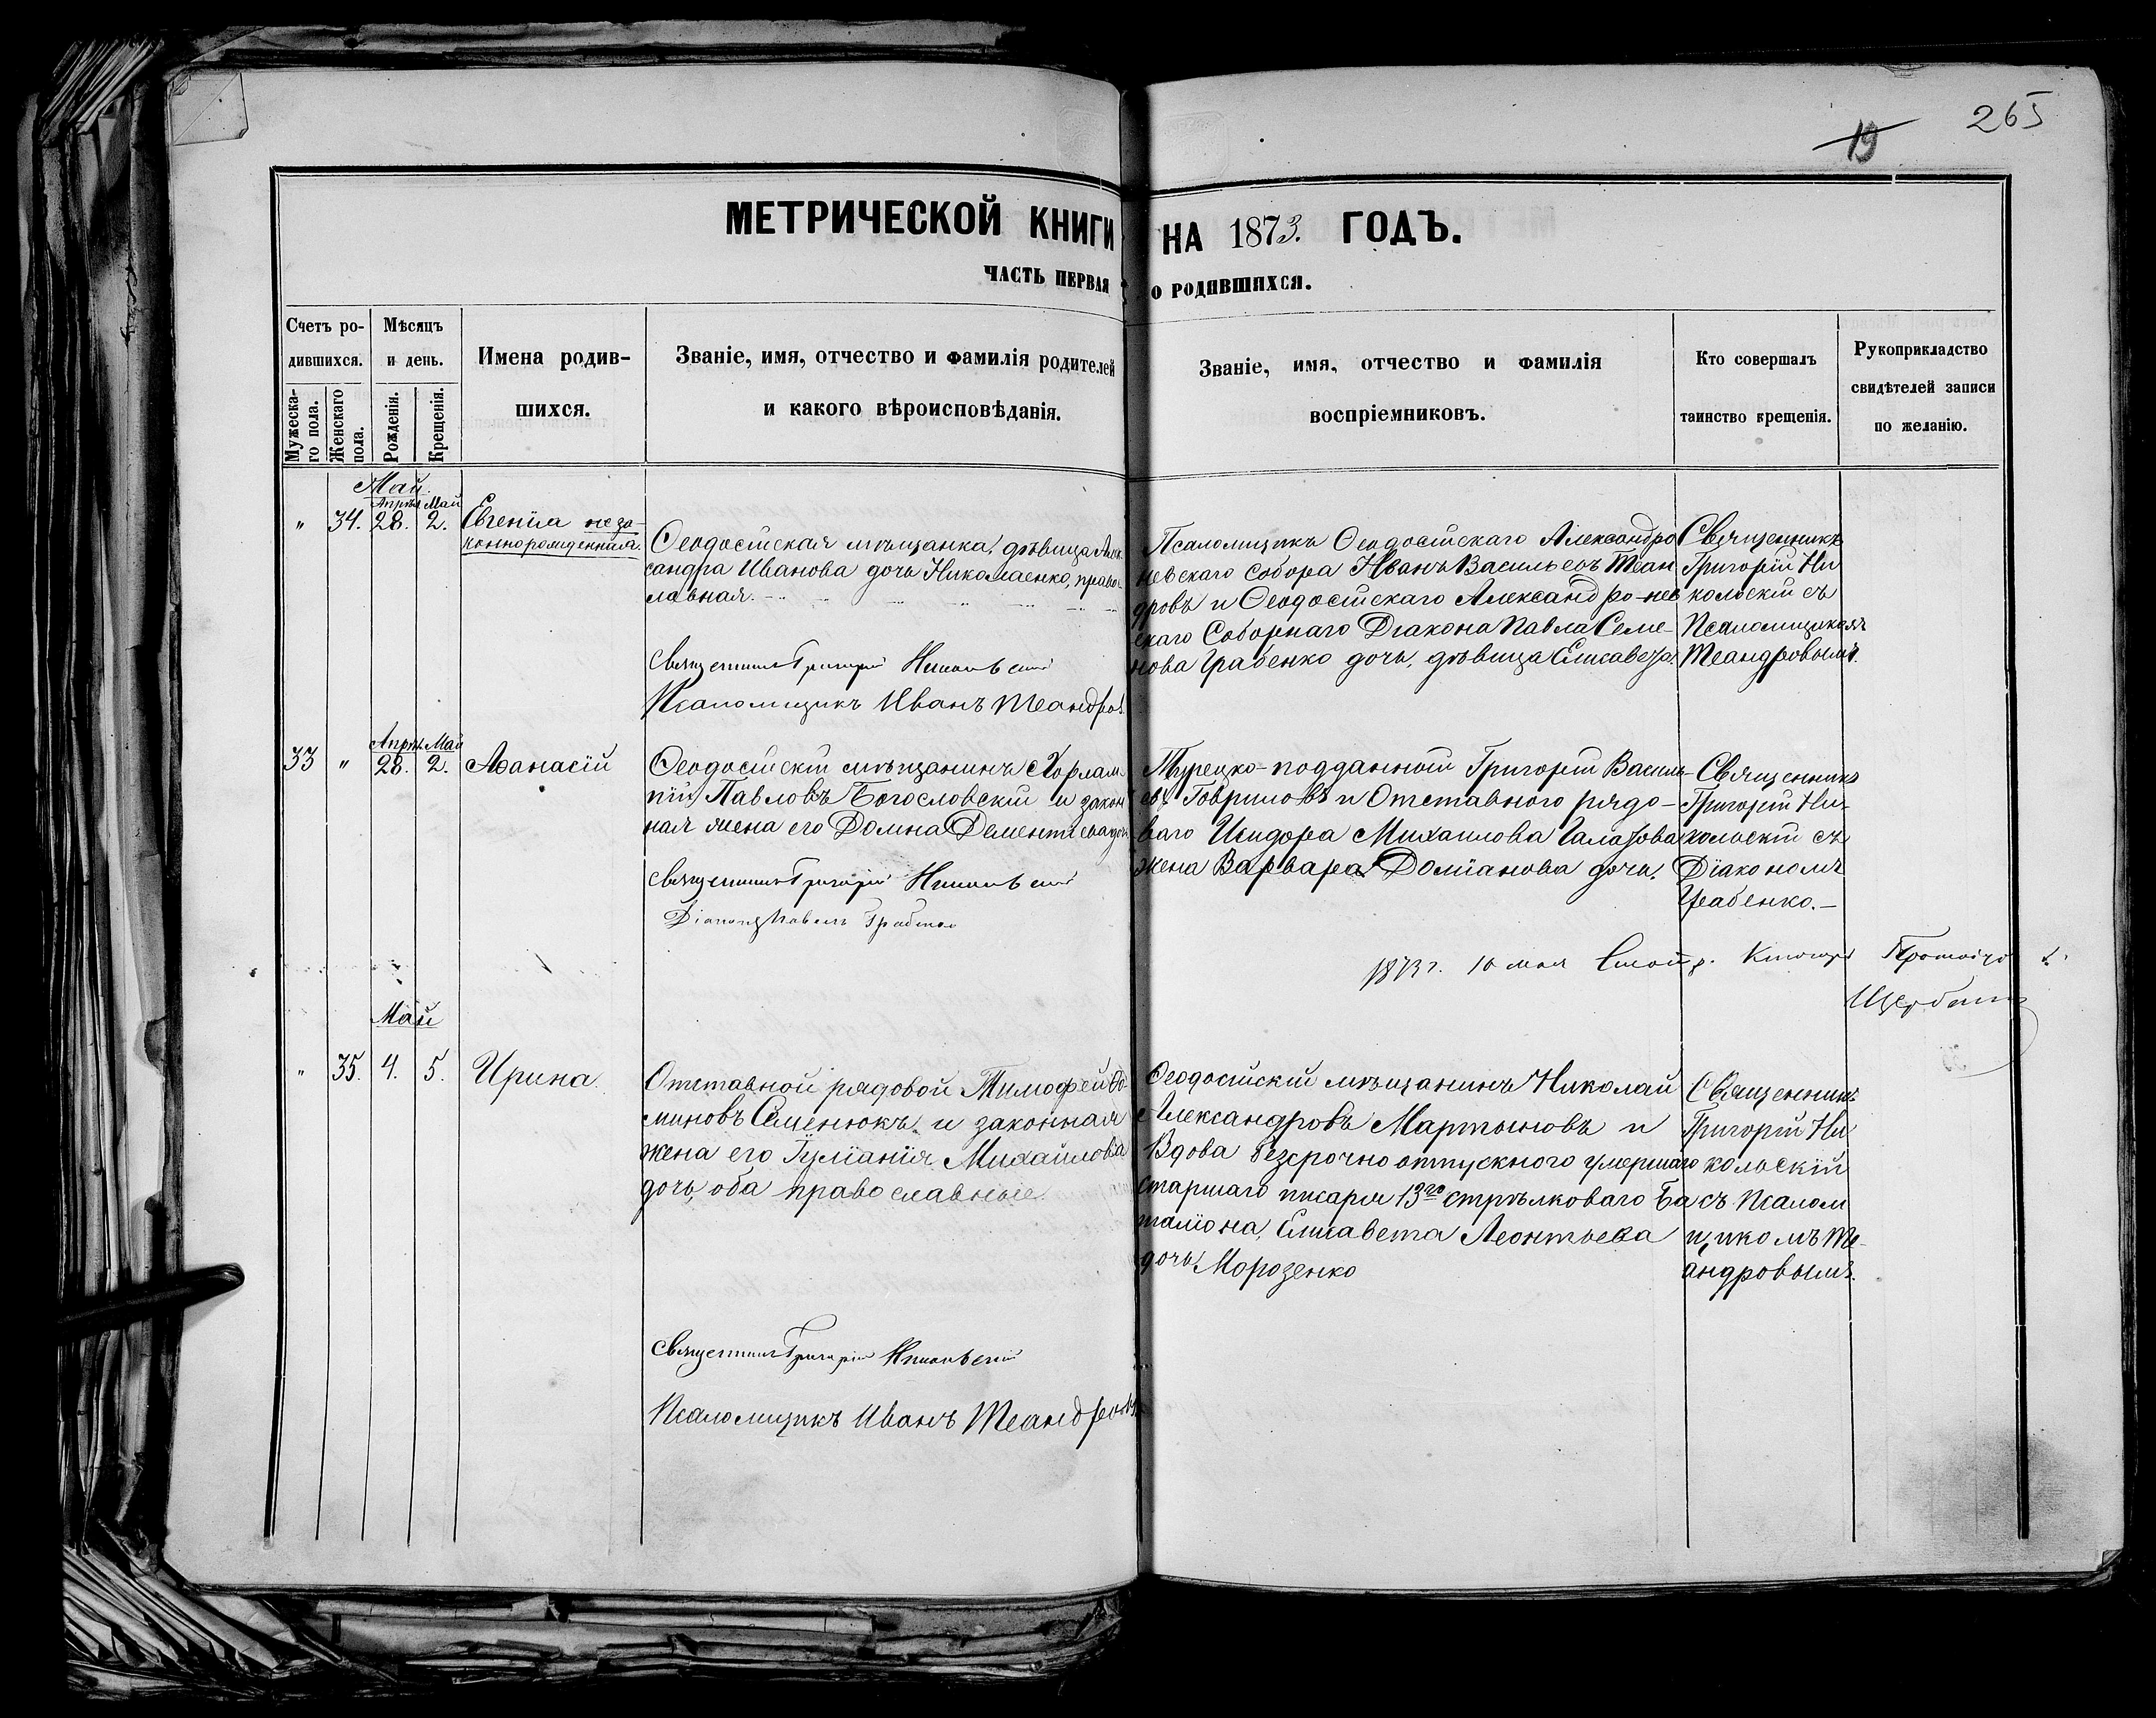 19 265
МЕТРИЧЕСКОЙ КНИГИ НА 1873. ГОДЪ.
ЧАСТЬ ПЕРВАЯ О РОДИВШИХСЯ.
Счетъ ро-
дившихся.
Мужеска-
го пола.
Женскаго
пола.
Мѣсяцъ
и день.
Рожденія.
Крещенія.
Имена родив-
шихся.
Званіе, имя, отчество и фамилія родителей
и какого вѣроисповѣданія.
Званіе, имя, отчество и фамилія
воспріемниковъ.
Кто совершалъ
таинство крещенія.
Рукоприкладство
свидѣтелей записи
по желанію.
Май.
Апрѣл Май
" 34. 28. 2.
Евгенія неза-
коннорожденная.
Ѳеодосійская мѣщанка, дѣвица Але-
сандра Иванова дочь Николаенко, правос-
лавная.
Священникъ Григорій Никольскій
Псаломщикъ Иванъ Теандров
Псаломщикъ Ѳеодосійскаго Александро
невскаго собора Иванъ Васильевъ Теан
дровъ и Ѳеодосійскаго Александро-нев
скаго Соборнаго Діакона Павла Семе-
нова Грабенко дочь, дѣвица Елисавета.
Священникъ
Григорій Ни
кольскій съ
Псаломщикомъ
Теандровымъ.
Апрѣл. Май
33 " 28. 2.
Аѳанасій
Ѳеодосійскій мѣщанинъ Харлам-
пій Павловъ Богословскій и закон
ная жена его Домна Дементіева доч
Священникъ Григорій Никольскій
Діаконъ Павелъ Грабенко
Турецко-подданной Григорій Василь-
евъ Говриловъ и Отставного рядо-
ваго Исидора Михаилова Галатова
жена Варвара Доміанова дочь.
Священникъ
Григорій Ни-
кольскій съ
Діакономъ
Грабенко.—
1873 г. 10 мая
Май
" 35. 4. 5.
Ирина.
Отставной рядовой Тимофей Ѳо-
миновъ Семенюкъ, и законная
жена его Іуліанія Михаилова
дочь, оба православные.
Священникъ Григорій Никольскій
Псаломщикъ Иванъ Теандровъ
Ѳеодосійскій мѣщанинъ Николай
Александровъ Мартыновъ и
Вдова безсрочно отпускного умершаго
старшаго писаря 13го стрѣлковаго Ба
таліона, Елисавета Леонтьева
дочь Морозенко
Священникъ
Григорій Ни
кольскій
съ Псалом
щикомъ Те-
андровымъ.